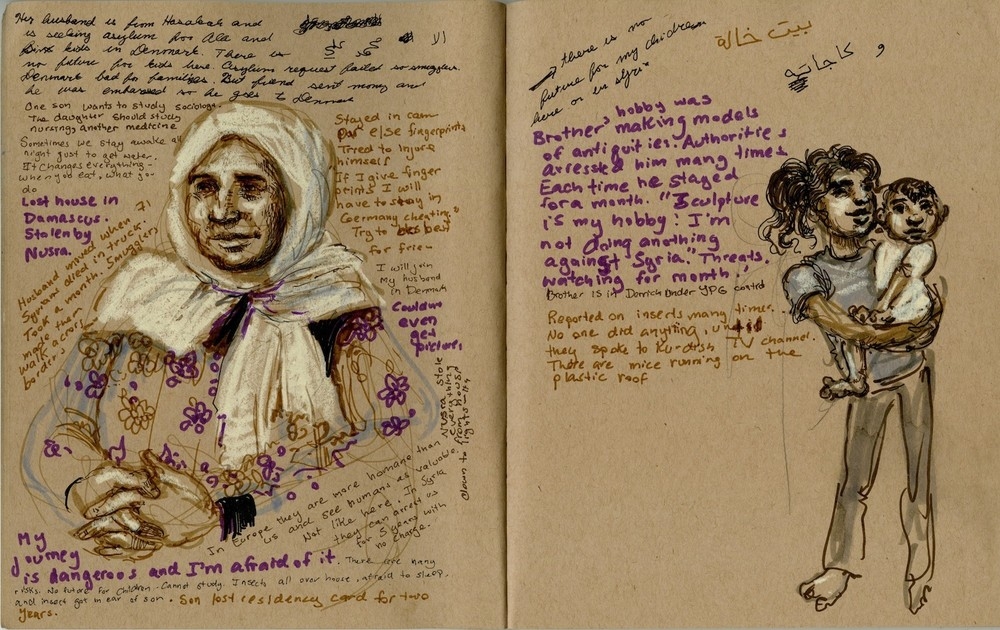 Her husband is from Hasakah and
is seeking asylum for Ala and
kids in Denmark. There is
no future for kids here. Asylum request failed so smuggler.
Denmark bad for families. But friend sent money and
he was embarassed so he goes to Denmark
الا
One son wants to study sociology.
The daughter should study
nursing another medicine
Sometimes we stay awake all
night just to get water.
It changes everything -
when you eat, what you
do
Lost house in
Damascus.
Stolen by
Nusra.
Husband moved when 71
Syrians died in truck.
Took a month. Smugglers
made them
walk across
borders
Stayed in camp
or else fingerprints
Tried to injure
himself
If I give finger
prints I will
have to stay in
Germany cheating.
Try to best
for
I will join
My husband
in Denmark
Couldn't
even
get
picture
Nusra stole
everything
from house,
down to
lights
In Europe they are more humane than
us and see humans as valuable.
Not like here. In Syria
they can arrest us
for 5 years with
no charge.
My
journey
is dangerous and I'm afraid of it. There are many
risks. No future for children. Cannot study. Insects all over house, afraid to sleep,
and insect got in ear of son. Son lost residency card for two
years.
there is no
future for my children
here or in Syria
بيت خالة
و كاجاته
Brother's hobby was
making models
of antiquities. Authorities
arressted him many times
Each time he stayed
for a month. "Sculpture
is my hobby! I'm
not doing anything
against Syria." Threats,
watching for month."
Brother is in Derrick under YPG control
Reported on insects many times.
No one did anything until
they spoke to Kurdish TV channel.
There are mice running on the
plastic roof